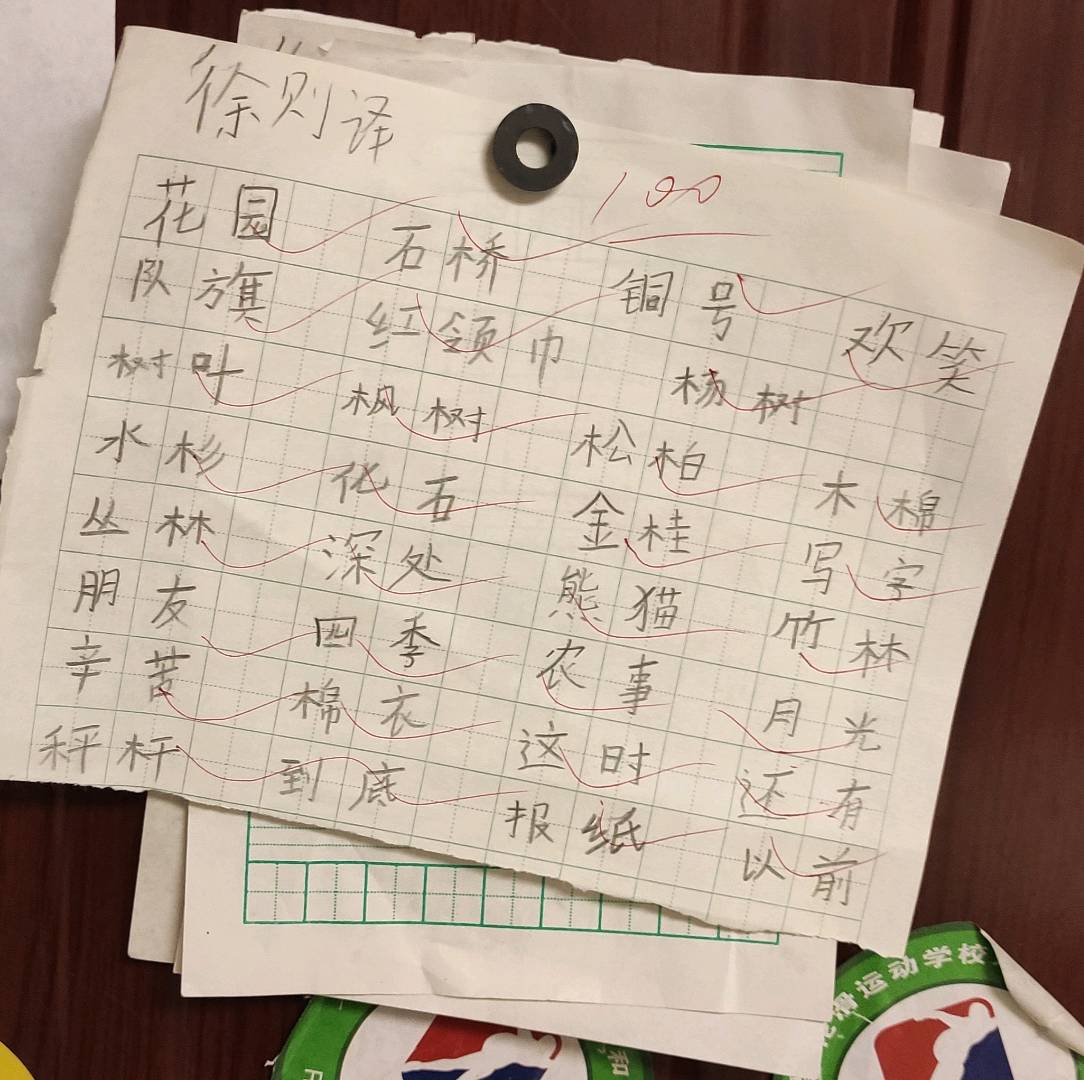 徐则译
100
花园 石桥 铜号 欢笑
队旗 红领巾 杨树
树叶 枫树 松柏 木棉
水杉 化石 金桂 写字
丛林 深处 熊猫 竹林
朋友 四季 农事 月光
辛苦 棉衣 这时 还有
秤杆 到底 报纸 以前
滑运动学校
和